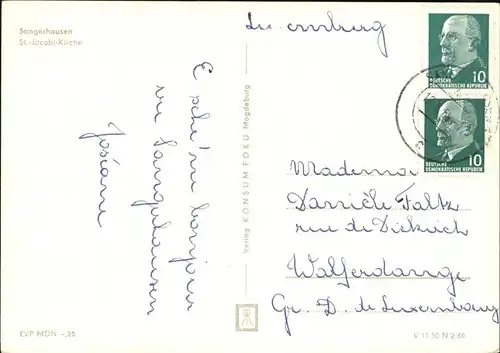 Sangerhausen
St.-Jacobi-Kirche
Luxemburg
E sche'ne bonjour
vu Sangerhausen
Josiane
Verlag KONSUM FOKU Magdeburg
10
DEUTSCHE
DEMOKRATISCHE REPUBLIK
10
DEUTSCHE
DEMOKRATISCHE REPUBLIK
Mademoi
Danièle Faltz
rue de Diekirch
Walferdange
Gr. D. de Luxembourg
EVP MDN -,25
V 11 50 N 2/66